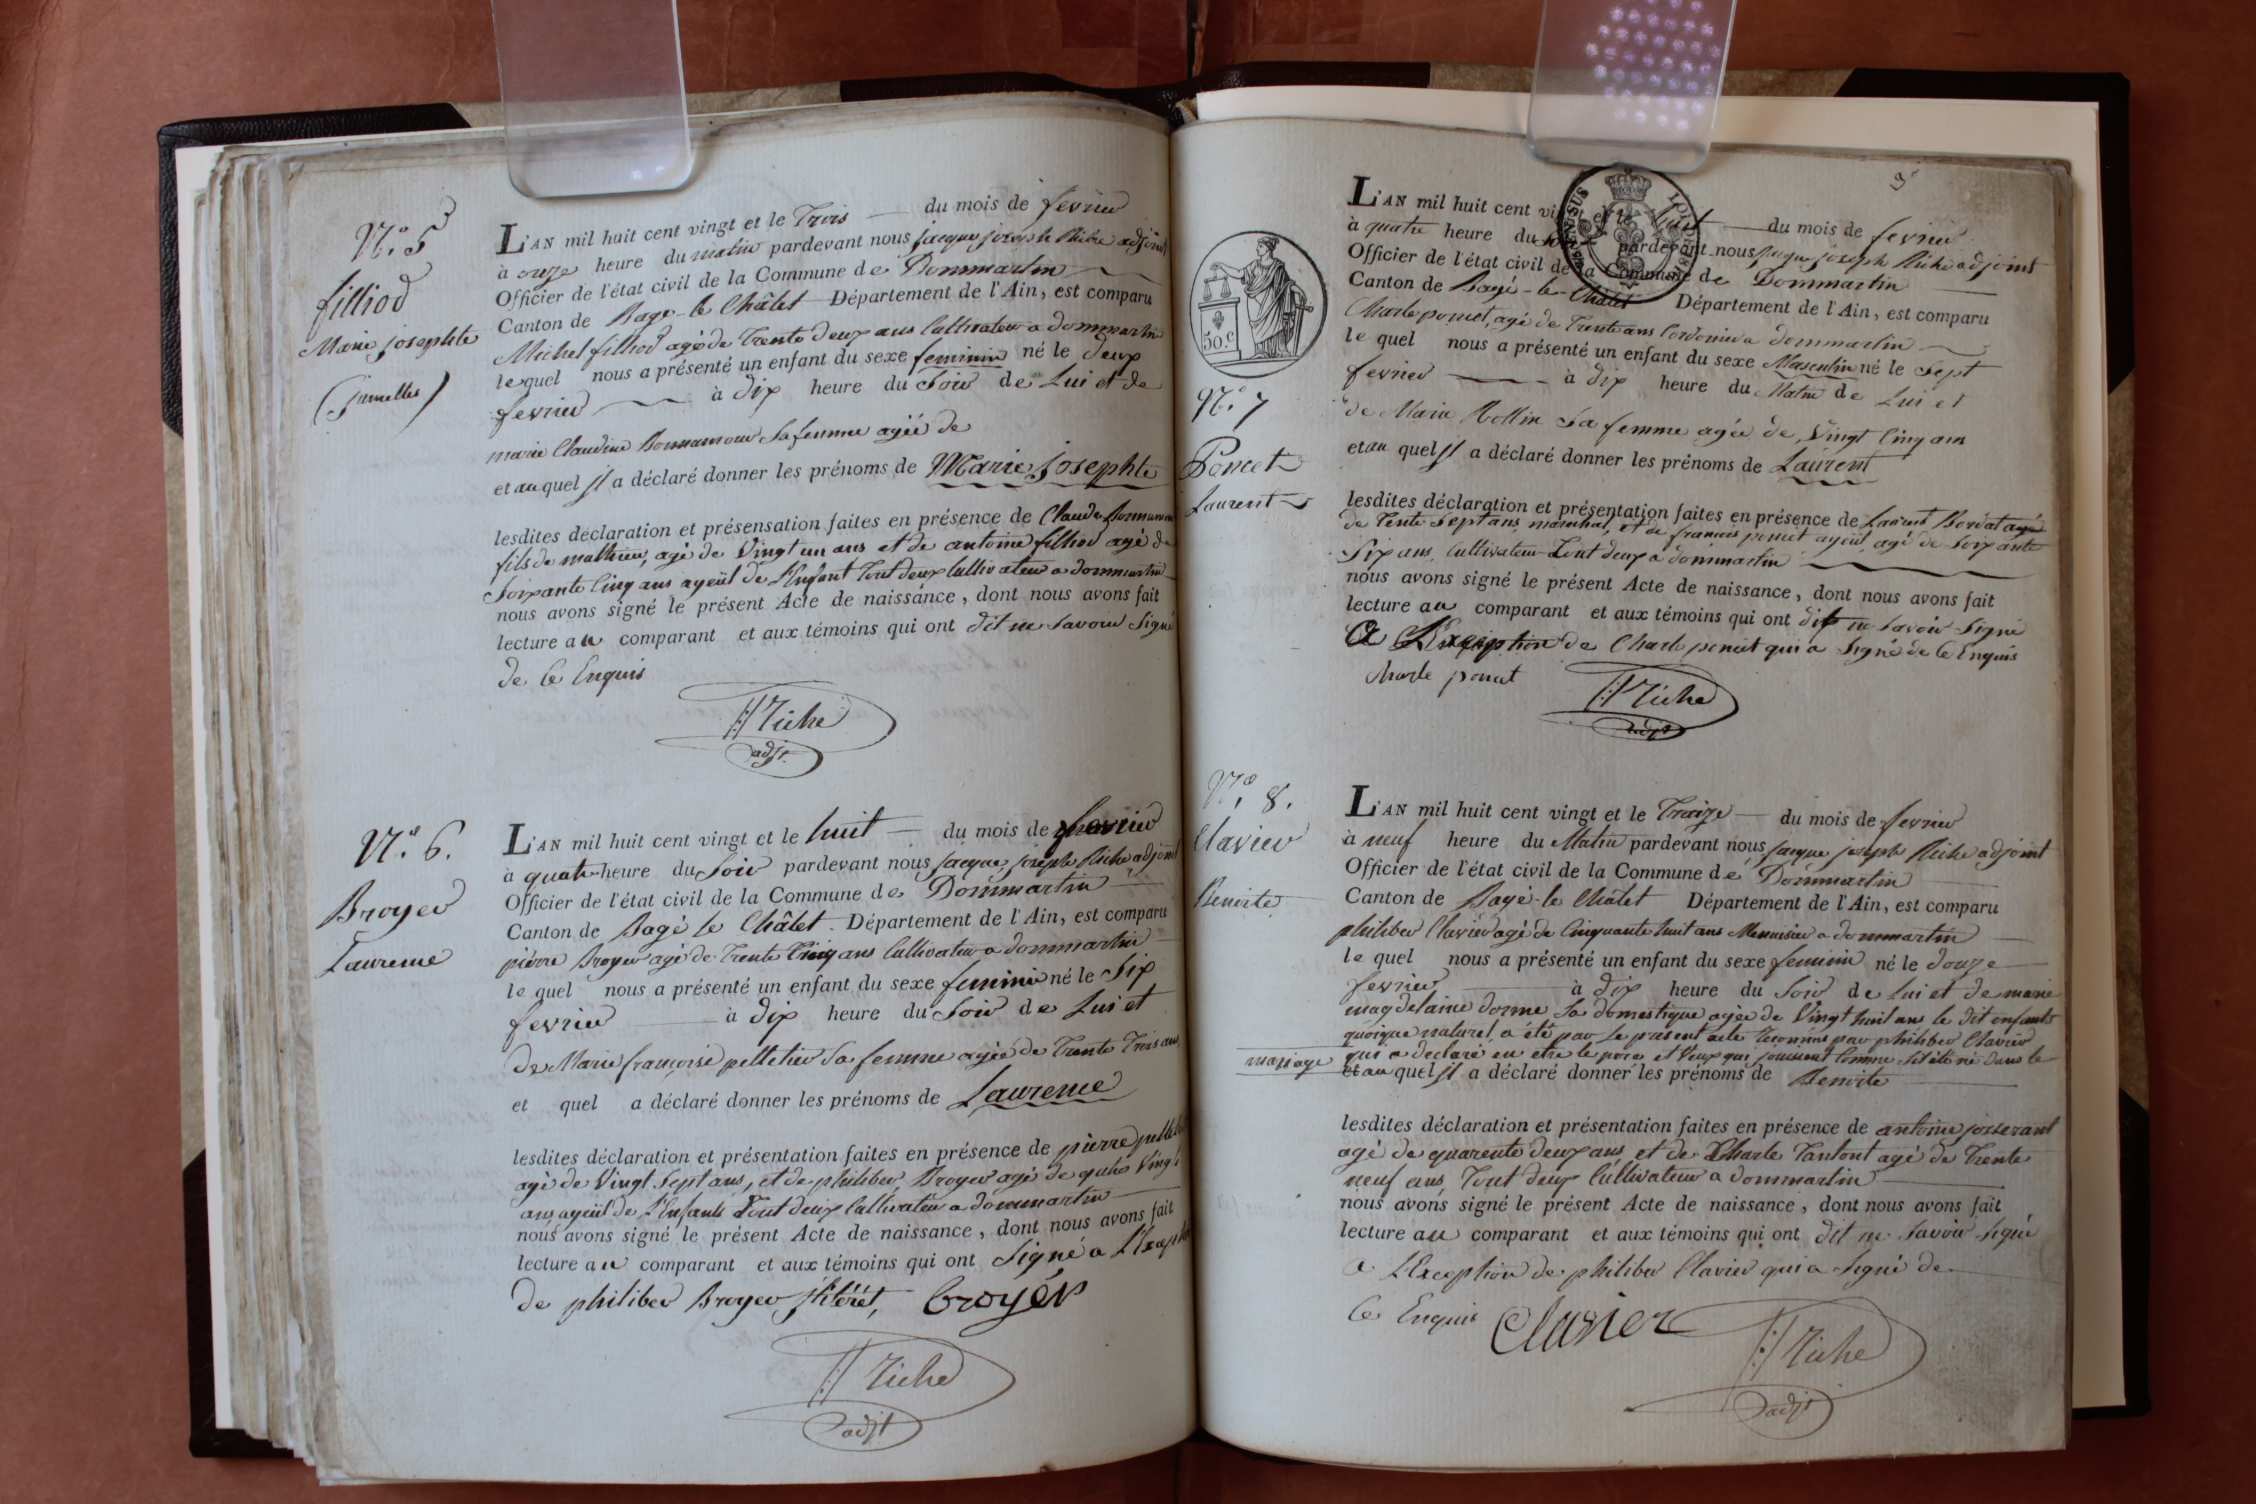 N.° 5
filliod
Marie josephte
(jumelles)
L'AN mil huit cent vingt et le Trois du mois de fevrier
à onze heure du matin pardevant nous jacque joseph Riche adjoint
Officier de l'état civil de la Commune de Dommartin
Canton de Bagé-le Châtel Département de l'Ain, est comparu
Michel filliod agé de Trente deux ans Cultivateur a dommartin
lequel nous a présenté un enfant du sexe feminin né le deux
fevrier à dix heure du Soir de Lui et de
marie Claudine Bonnamour Sa femme agéé de
et au quel Il a déclaré donner les prénoms de Marie josephte
lesdites déclaration et présensation faites en présence de Claude Bonnamour
fils de mathieu, agé de Vingt un ans et de antoine filliod agé de
Soixante Cinq ans ayeül de L'Enfant Tout deux Cultivateur a dommartin
nous avons signé le présent Acte de naissance, dont nous avons fait
lecture au comparant et aux témoins qui ont dit ne Savoir Signé
de Ce Enquis
Riche
adjt.
N.° 6.
Broyer
Laurence
L'AN mil huit cent vingt et le huit du mois de fevrier
à quatre heure du Soir pardevant nous jacque joseph Riche adjoint
Officier de l'état civil de la Commune de Dommartin
Canton de Bagé le Châtel. Département de l'Ain, est comparu
pierre Broyer agé de Trente Cinq ans Cultivateur a dommartin
le quel nous a présenté un enfant du sexe feminin né le Six
fevrier à dix heure du Soir de Lui et
de Marie françoise pelletier Sa femme agéé de Trente Trois ans
et quel a déclaré donner les prénoms de Laurence
lesdites déclaration et présentation faites en présence de pierre
agé de Vingt Sept ans, et de philiber Broyer agé de quatre Vingt
ans ayeül de L'Enfants Tout deux Cultivateur a dommartin
nous avons signé le présent Acte de naissance, dont nous avons fait
lecture au comparant et aux témoins qui ont Signé a L'Exception
de philiber Broyer Illitéret, broyer
Riche
adjt
9
50.c
N.° 7
Poncet
Laurent
L'AN mil huit cent vingt et le huit du mois de fevrier
à quatre heure du Soir pardevant nous jacque joseph Riche adjoint
Officier de l'état civil de la Commune de Dommartin
Canton de Bagé-le-Châtel Département de l'Ain, est comparu
Charle poncet, agé de Trente ans Cordonier a dommartin
le quel nous a présenté un enfant du sexe Masculin né le Sept
fevrier à dix heure du Matin de Lui et
de Marie Rollin Sa femme agée de Vingt Cinq ans
et au quel Il a déclaré donner les prénoms de Laurent
lesdites déclaration et présentation faites en présence de Laurent Bordat agé
de Trente Sept ans marechal, et de francois poncet ayeül, agé de Soixante
Six ans, Cultivateur Tout deux a dommartin
nous avons signé le présent Acte de naissance, dont nous avons fait
lecture au comparant et aux témoins qui ont dit ne Savoir Signé
A L'Exception de Charle poncet qui a Signé de Ce Enquis
charle poncet
Riche
adjt
N.° 8.
Clavier
Benoite
L'AN mil huit cent vingt et le Treize du mois de fevrier
à neuf heure du Matin pardevant nous jacque joseph Riche adjoint
Officier de l'état civil de la Commune de Dommartin
Canton de Bagé-le Châtel Département de l'Ain, est comparu
philiber Clavier agé de Cinquante huit ans Menuisier a dommartin
le quel nous a présenté un enfant du sexe feminin né le douze
fevrier à dix heure du Soir de Lui et de marie
magdelaine dorme Sa domestique agée de Vingt huit ans le dit enfants
quoique naturel, a été par Le present acte reconnu par philiber Clavier
qui a declaré en etre le pere et Veux qui jouissent Comme Sil été né dans le
mariage
et au quel Il a déclaré donner les prénoms de Benoite
lesdites déclaration et présentation faites en présence de antoine josserant
agé de quarente deux ans, et de Charle Tantout agé de Trente
neuf ans, Tout deux Cultivateur a dommartin
nous avons signé le présent Acte de naissance, dont nous avons fait
lecture au comparant et aux témoins qui ont dit ne Savoir Signé
a L'Exception de philiber Clavier qui a Signé de
Ce Enquis Clavier
Riche
adjt